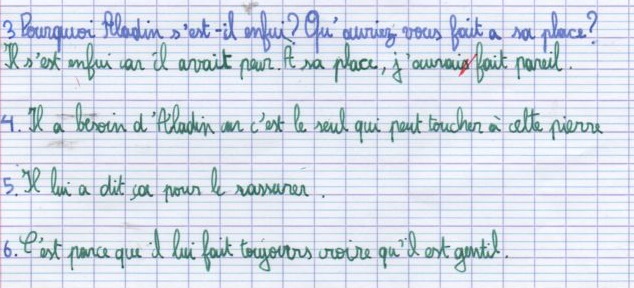 3 Pourquoi Aladin s'est-il enfui? Qu'auriez vous fait a sa place?
Il s'est enfui car il avait peur. A sa place, j'aurais fait pareil.
4. Il a besoin d'Aladin car c'est le seul qui peut toucher à cette pierre
5. Il lui a dit ça pour le rassurer.
6. C'est parce que il lui fait toujours croire qu'il est gentil.